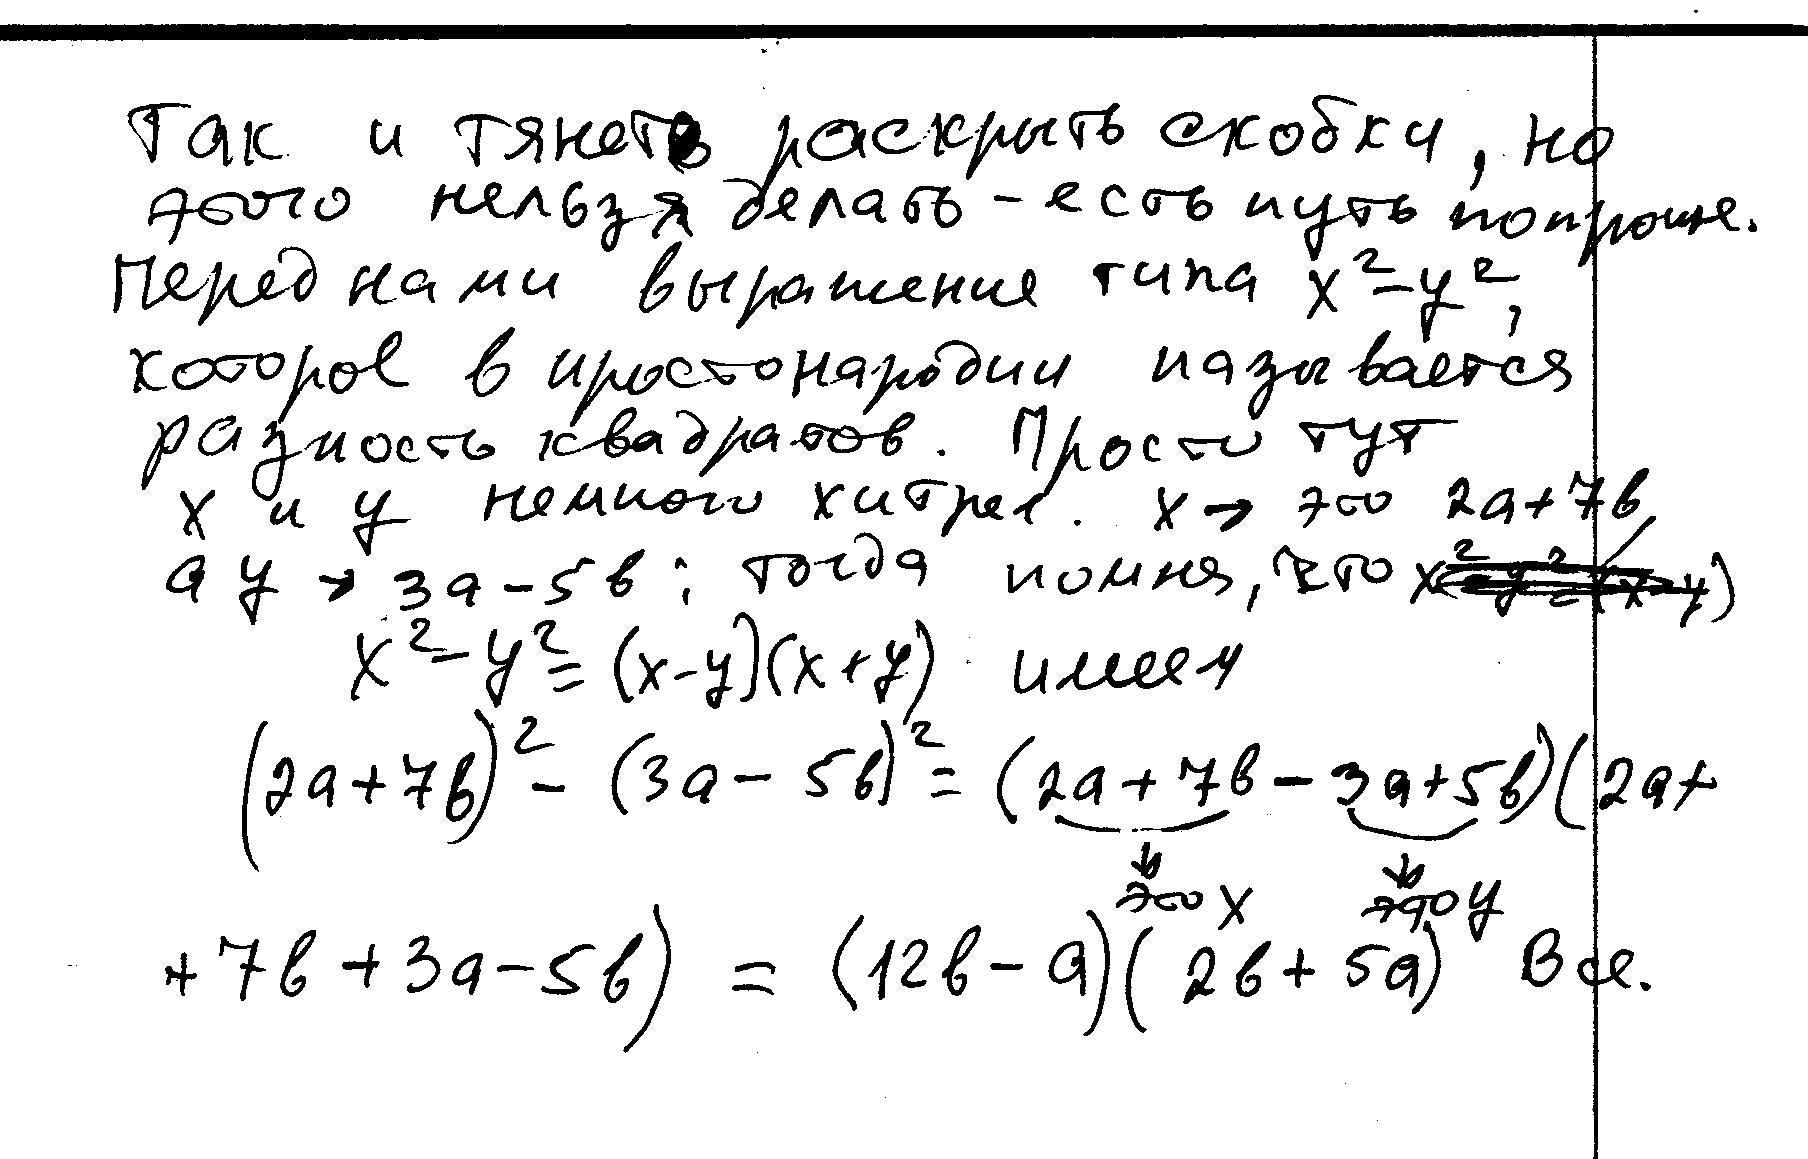 Так и тянеть раскрыть скобки, но
этого нельзя делать - есть путь попроще.
Перед нами выражение типа x²-y²,
которое в простонародии называется
разность квадратов. Просто тут
x и y немного хитрее. x → это 2a+7b,
а y → 3a-5b; тогда помня, что
x²-y²=(x-y)(x+y) имеем
(2a+7b)² - (3a-5b)² = (2a+7b-3a+5b)(2a+
это x это y
+7b+3a-5b) = (12b-a)(2b+5a) Все.